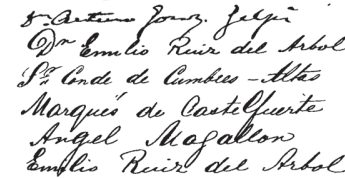 Dn Arturo Gomz. Gelpi
Dn Emilio Ruiz del Arbol
Sr. Conde de Cumbres-Altas
Marqués de Castelfuerte
Angel Magallon
Emilio Ruiz del Arbol